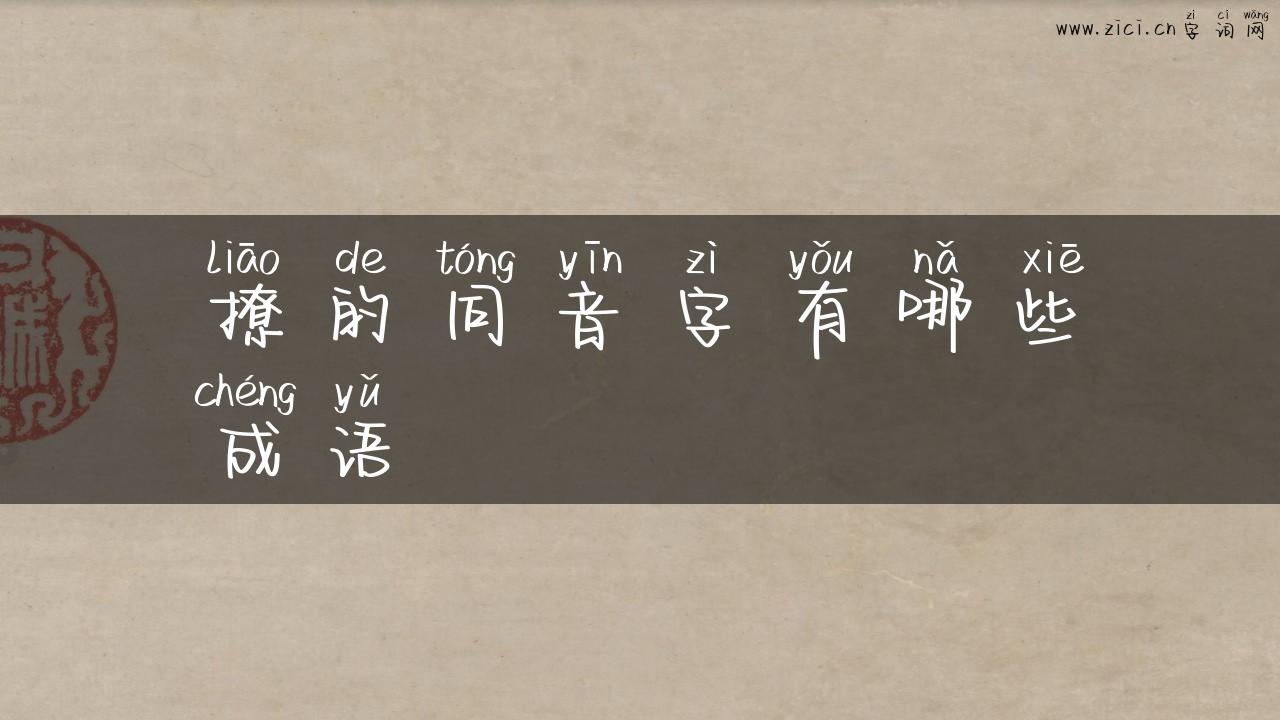 zì cí wǎng
www.zici.cn 字词网
liāo de tóng yīn zì yǒu nǎ xiē
撩的同音字有哪些
chéng yǔ
成语